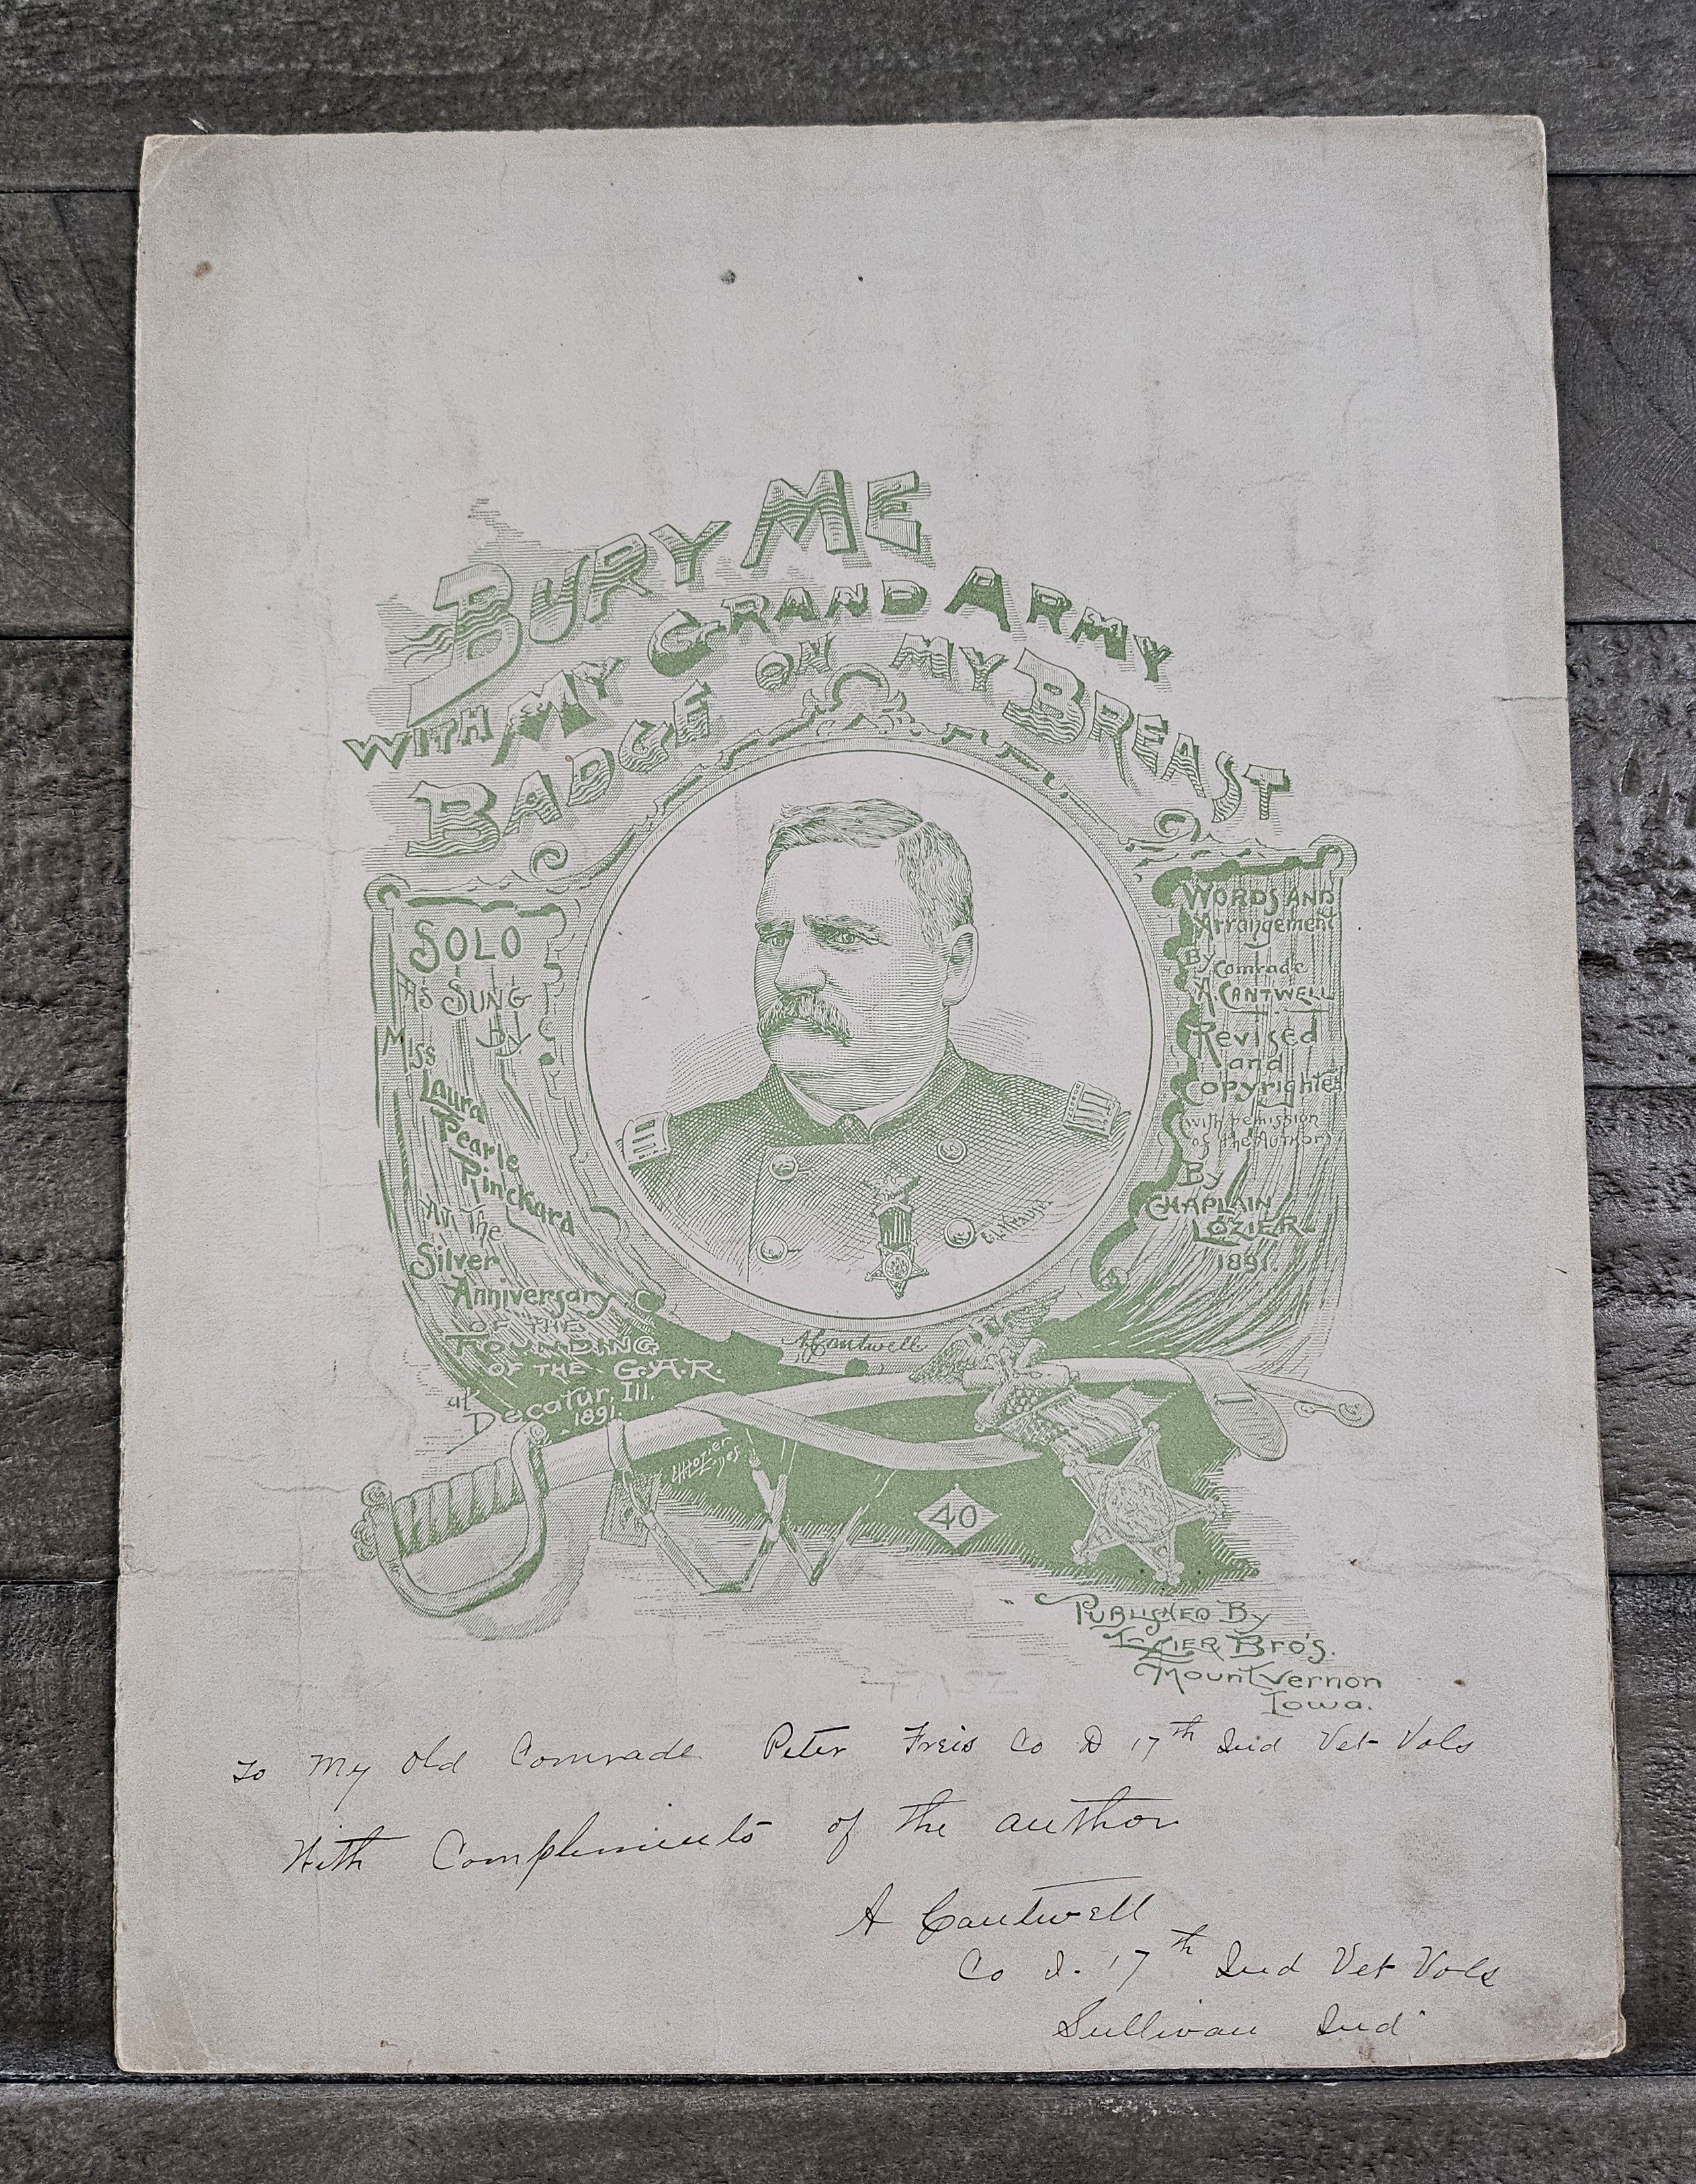 BURY ME
WITH MY GRAND ARMY
BADGE ON MY BREAST
SOLO
AS SUNG
BY
MISS
Laura
Pearle
Rinckard
AT THE
Silver
Anniversary
OF THE
FOUNDING
OF THE G.A.R.
at Decatur, Ill.
1891.
WORDS AND
Arrangement
By Comrade
A. CANTWELL
Revised
and
Copyrighted
(with permission
of the Author)
By
CHAPLAIN
LOZIER
1891.
A Cantwell
40
PUBLISHED BY
LOZIER BRO'S.
Mount Vernon
Iowa.
To My Old Comrade Peter Freis Co D 17th Ind Vet Vols
With Compliments of the author
A Cantwell
Co I. 17th Ind Vet Vols
Sullivan Ind